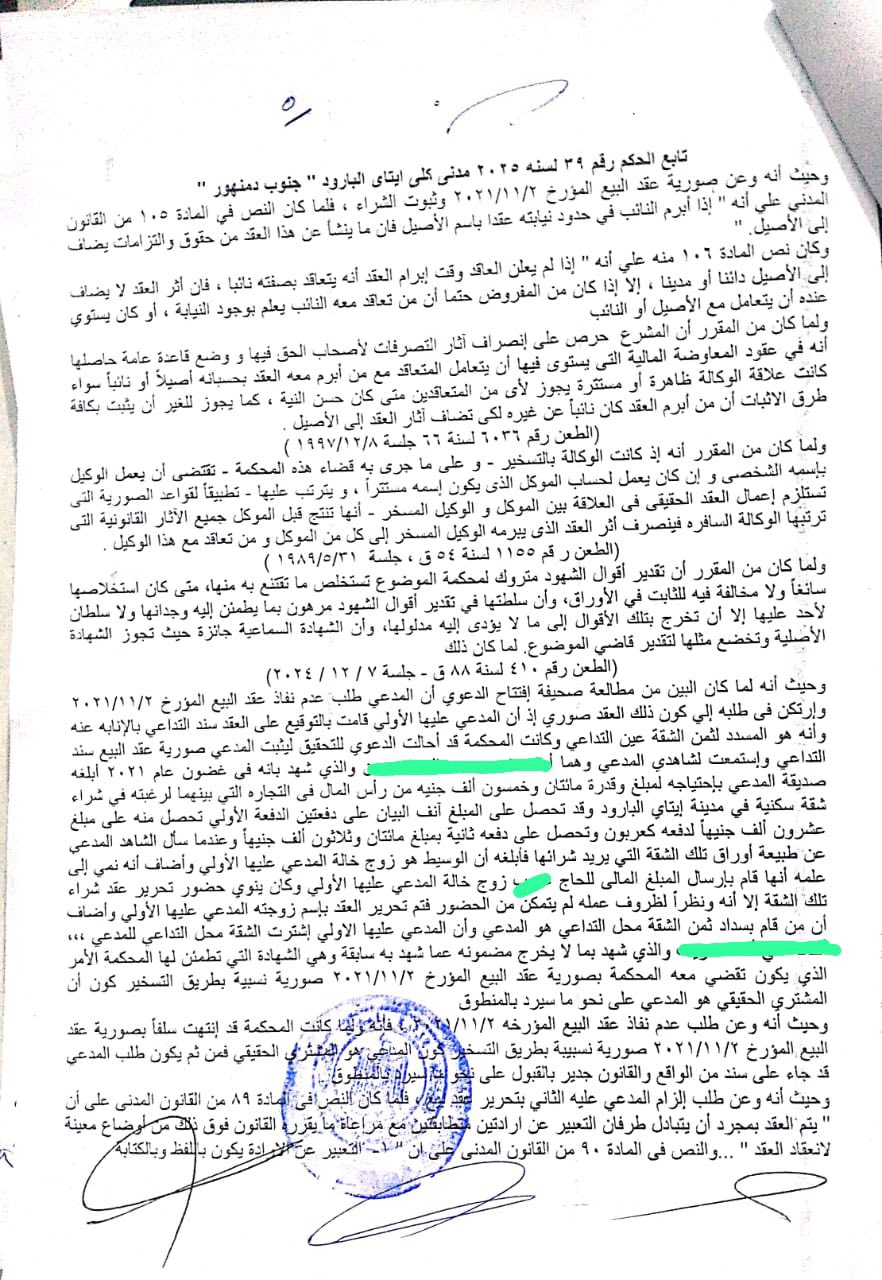 ٥
تابع الحكم رقم ٣٩ لسنه ٢٠٢٥ مدنى كلى ايتاى البارود " جنوب دمنهور "
وحيث أنه وعن صورية عقد البيع المؤرخ ٢٠٢١/١١/٢ وثبوت الشراء ، فلما كان النص في المادة ١٠٥ من القانون
المدني علي أنه " إذا أبرم النائب في حدود نيابته عقدا باسم الأصيل فان ما ينشأ عن هذا العقد من حقوق والتزامات يضاف
إلى الأصيل. "
وكان نص المادة ١٠٦ منه علي أنه " إذا لم يعلن العاقد وقت إبرام العقد أنه يتعاقد بصفته نائبا ، فان أثر العقد لا يضاف
إلى الأصيل دائنا أو مدينا ، إلا إذا كان من المفروض حتما أن من تعاقد معه النائب يعلم بوجود النيابة ، أو كان يستوي
عنده أن يتعامل مع الأصيل أو النائب
ولما كان من المقرر أن المشرع حرص على إنصراف آثار التصرفات لأصحاب الحق فيها و وضع قاعدة عامة حاصلها
أنه في عقود المعاوضة المالية التى يستوى فيها أن يتعامل المتعاقد مع من أبرم معه العقد بحسبانه أصيلاً أو نائباً سواء
كانت علاقة الوكالة ظاهرة أو مستترة يجوز لأى من المتعاقدين متى كان حسن النية ، كما يجوز للغير أن يثبت بكافة
طرق الاثبات أن من أبرم العقد كان نائباً عن غيره لكى تضاف آثار العقد إلى الأصيل .
(الطعن رقم ٦٠٣٦ لسنة ٦٦ جلسة ١٩٩٧/١٢/٨ )
ولما كان من المقرر أنه إذ كانت الوكالة بالتسخير - و على ما جرى به قضاء هذه المحكمة - تقتضى أن يعمل الوكيل
بإسمه الشخصى و إن كان يعمل لحساب الموكل الذى يكون إسمه مستتراً ، و يترتب عليها - تطبيقاً لقواعد الصورية التى
تستلزم إعمال العقد الحقيقى فى العلاقة بين الموكل و الوكيل المسخر - أنها تنتج قبل الموكل جميع الآثار القانونية التى
ترتبها الوكالة السافره فينصرف أثر العقد الذى يبرمه الوكيل المسخر إلى كل من الموكل و من تعاقد مع هذا الوكيل .
(الطعن ر قم ١١٥٥ لسنة ٥٤ ق ، جلسة ١٩٨٩/٥/٣١ )
ولما كان من المقرر أن تقدير أقوال الشهود متروك لمحكمة الموضوع تستخلص ما تقتنع به منها، متى كان استخلاصها
سائغاً ولا مخالفة فيه للثابت في الأوراق، وأن سلطتها في تقدير أقوال الشهود مرهون بما يطمئن إليه وجدانها ولا سلطان
لأحد عليها إلا أن تخرج بتلك الأقوال إلى ما لا يؤدى إليه مدلولها، وأن الشهادة السماعية جائزة حيث تجوز الشهادة
الأصلية وتخضع مثلها لتقدير قاضي الموضوع. لما كان ذلك
(الطعن رقم ٤١٠ لسنة ٨٨ ق - جلسة ٧ / ١٢ / ٢٠٢٤)
وحيث أنه لما كان البين من مطالعة صحيفة إفتتاح الدعوي أن المدعي طلب عدم نفاذ عقد البيع المؤرخ ٢٠٢١/١١/٢
وإرتكن فى طلبه إلي كون ذلك العقد صوري إذ أن المدعي عليها الأولي قامت بالتوقيع على العقد سند التداعي بالإنابه عنه
وأنه هو المسدد لثمن الشقة عين التداعي وكانت المحكمة قد أحالت الدعوي للتحقيق ليثبت المدعي صورية عقد البيع سند
التداعي وإستمعت لشاهدي المدعي وهما والذي شهد بانه فى غضون عام ٢٠٢١ أبلغه
صديقة المدعي بإحتياجه لمبلغ وقدرة مائتان وخمسون ألف جنيه من رأس المال فى التجاره التي بينهما لرغبته في شراء
شقة سكنية في مدينة إيتاي البارود وقد تحصل على المبلغ آنف البيان على دفعتين الدفعة الأولي تحصل منه على مبلغ
عشرون ألف جنيهاً لدفعه كعربون وتحصل على دفعه ثانية بمبلغ مائتان وثلاثون ألف جنيهاً وعندما سأل الشاهد المدعي
عن طبيعة أوراق تلك الشقة التي يريد شرائها فأبلغه أن الوسيط هو زوج خالة المدعي عليها الأولي وأضاف أنه نمي إلى
علمه أنها قام بإرسال المبلغ المالى للحاج زوج خالة المدعي عليها الأولي وكان ينوي حضور تحرير عقد شراء
تلك الشقة إلا أنه ونظراً لظروف عمله لم يتمكن من الحضور فتم تحرير العقد بإسم زوجته المدعي عليها الأولي وأضاف
أن من قام بسداد ثمن الشقة محل التداعي هو المدعي وأن المدعي عليها الاولي إشترت الشقة محل التداعي للمدعي ،،،
والذي شهد بما لا يخرج مضمونه عما شهد به سابقة وهي الشهادة التي تطمئن لها المحكمة الأمر
الذي يكون تقضي معه المحكمة بصورية عقد البيع المؤرخ ٢٠٢١/١١/٢ صورية نسبية بطريق التسخير كون أن
المشتري الحقيقي هو المدعي على نحو ما سيرد بالمنطوق
وحيث أنه وعن طلب عدم نفاذ عقد البيع المؤرخه ٢٠٢١/١١/٢ ، فإنه ولما كانت المحكمة قد إنتهت سلفاً بصورية عقد
البيع المؤرخ ٢٠٢١/١١/٢ صورية نسبية بطريق التسخير كون المدعي هو المشتري الحقيقي فمن ثم يكون طلب المدعي
قد جاء على سند من الواقع والقانون جدير بالقبول على نحو ما سيرد بالمنطوق .
وحيث أنه وعن طلب إلزام المدعي عليه الثاني بتحرير عقد بيع ، فلما كان النص فى المادة ٨٩ من القانون المدنى على أن
" يتم العقد بمجرد أن يتبادل طرفان التعبير عن ارادتين متطابقتين مع مراعاة ما يقرره القانون فوق ذلك من أوضاع معينة
لانعقاد العقد " ...والنص فى المادة ٩٠ من القانون المدنى على ان " ١- التعبير عن الارادة يكون باللفظ وبالكتابة